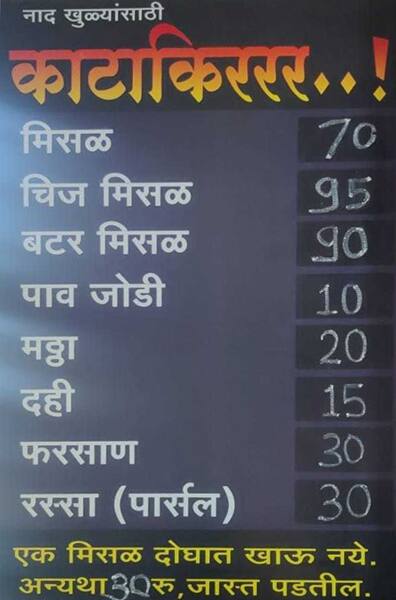 नाद खुळ्यांसाठी
काटाकिररर..!
मिसळ 70
चिज मिसळ 95
बटर मिसळ 90
पाव जोडी 10
मठ्ठा 20
दही 15
फरसाण 30
रस्सा (पार्सल) 30
एक मिसळ दोघात खाऊ नये.
अन्यथा 30 रु, जास्त पडतील.